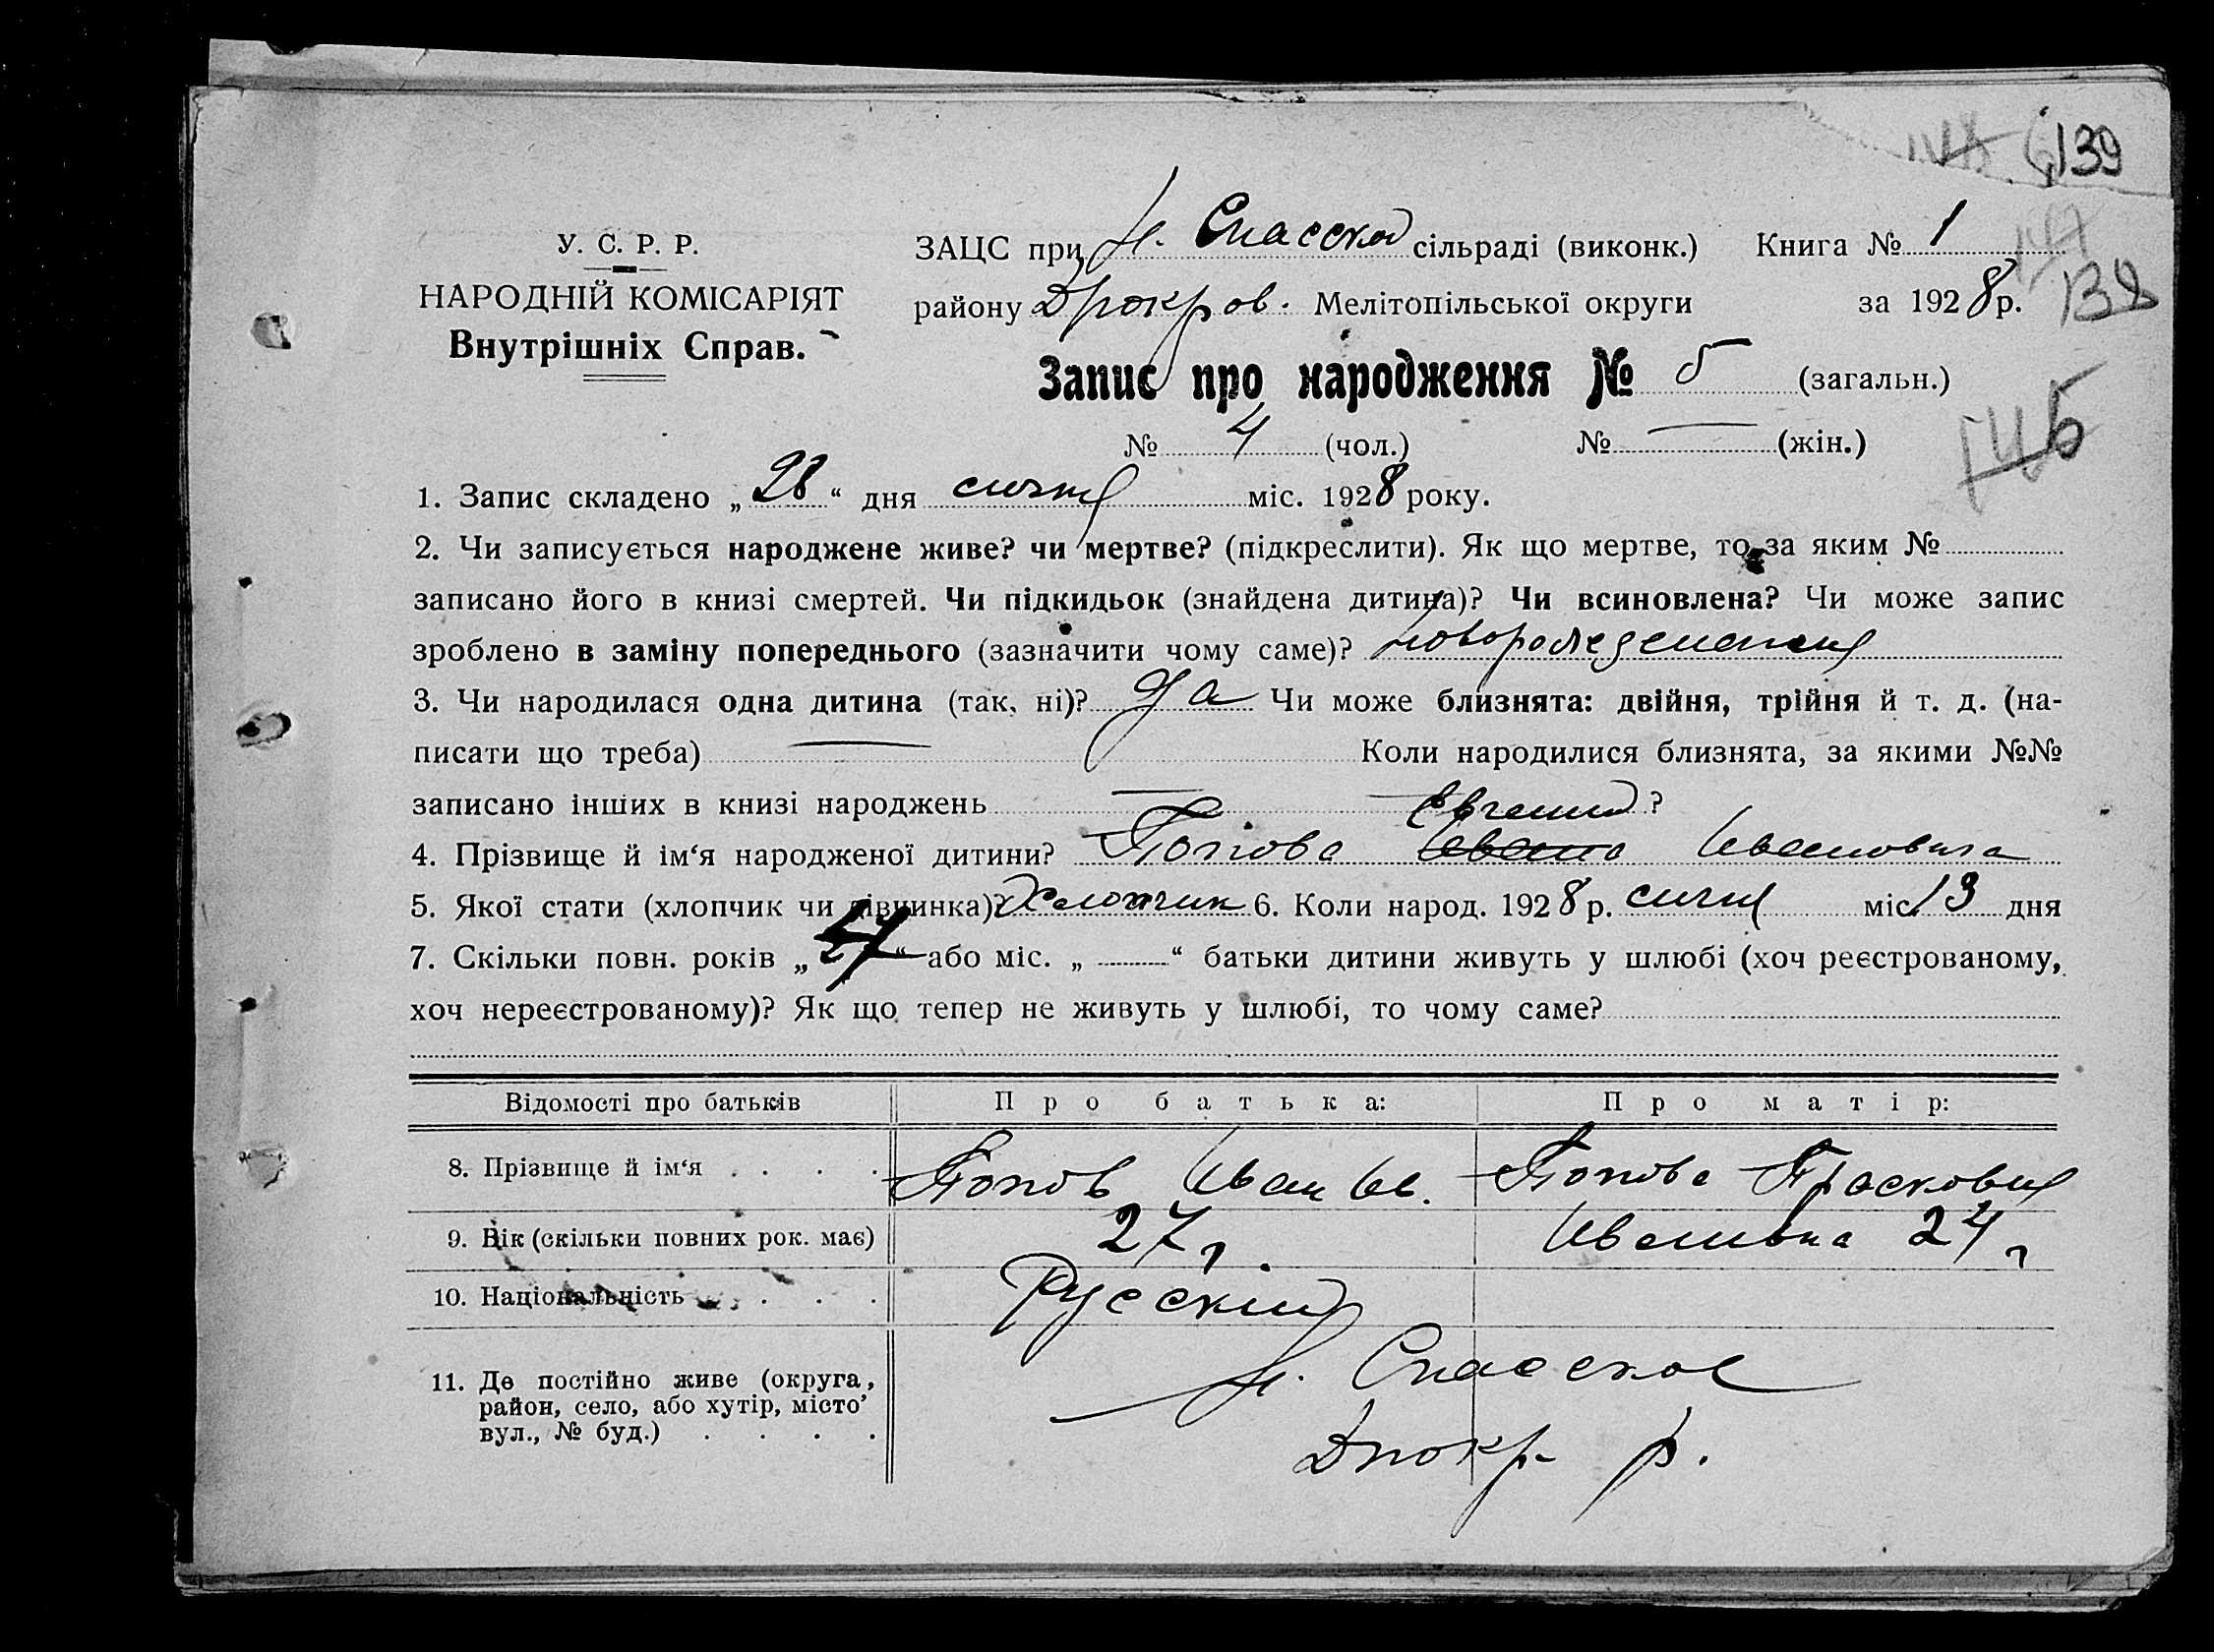 139
У. С. Р. Р.
НАРОДНІЙ КОМІСАРІЯТ
Внутрішніх Справ.
ЗАЦС при Н. Спасской сільраді (виконк.) Книга № 1
району Мелітопільської округи за 1928 р.
138
Запис про народження № 5 (загальн.)
№ 4 (чол.) № — (жін.)
1. Запис складено „28“ дня січня міс. 1928 року.
2. Чи записується народжене живе? чи мертве? (підкреслити). Як що мертве, то за яким №
записано його в книзі смертей. Чи підкидьок (знайдена дитина)? Чи всиновлена? Чи може запис
зроблено в заміну попереднього (зазначити чому саме)?
3. Чи народилася одна дитина (так, ні)? да Чи може близнята: двійня, трійня й т. д. (на-
писати що треба) — Коли народилися близнята, за якими №№
записано інших в книзі народжень — ?
Евгений
4. Прізвище й ім‘я народженої дитини? Попова Ивана Ивановича
5. Якої стати (хлопчик чи дівчинка)? Хлопчик 6. Коли народ. 1928 р. січня міс. 13 дня
7. Скільки повн. років „ “ або міс. „ — “ батьки дитини живуть у шлюбі (хоч реєстрованому,
хоч нереєстрованому)? Як що тепер не живуть у шлюбі, то чому саме?
Відомості про батьків Про батька: Про матір:
8. Прізвище й ім‘я . . . . Попов Иван Ив. Попова Прасковия
9. Вік (скільки повних рок. має) 27 г. Ивановна 24 г
10. Національність . . . . Русский
11. Де постійно живе (округа,
район, село, або хутір, місто’
вул., № буд.) . . . .
Н. Спасское
Дпокр. р.